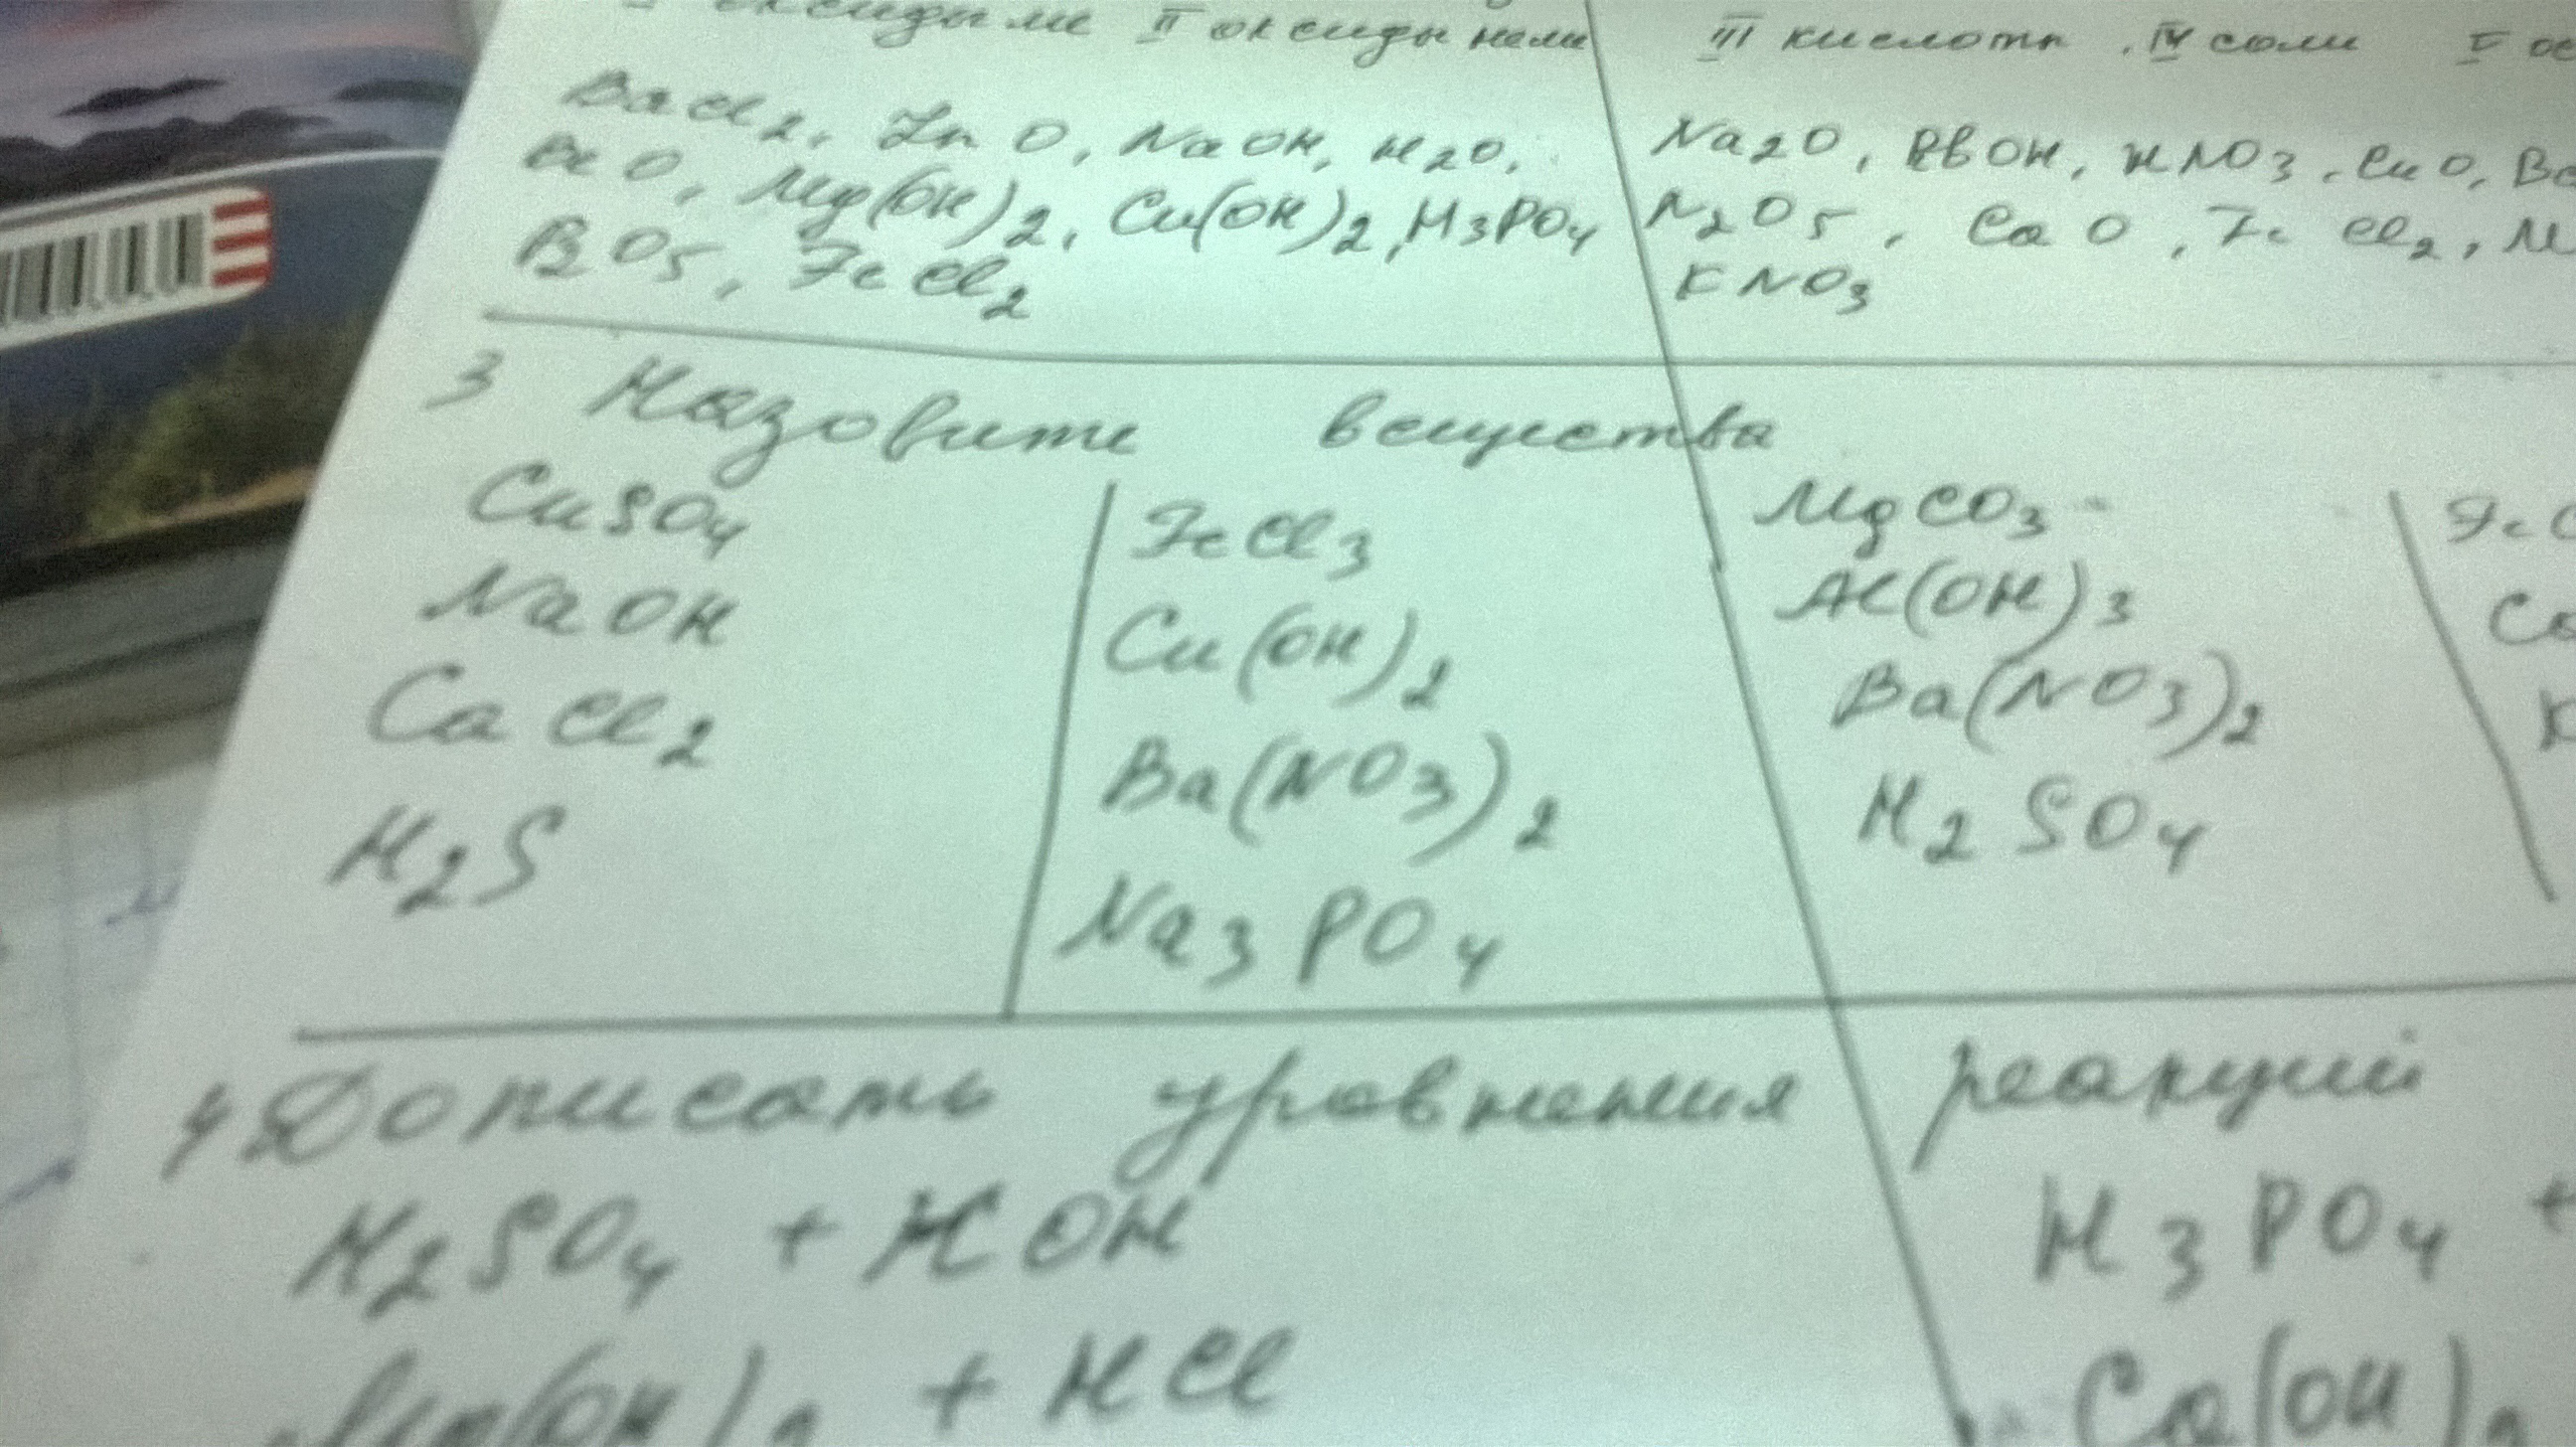 оксиды ме II оксиды неме III кислоты . IV соли V ос
BaCl2, ZnO, NaOH, H2O,
Mg(OH)2, Cu(OH)2, H3PO4
P2O5, FeCl2
Na2O, RbOH, HNO3, CuO, Ba
N2O5, CaO, FeCl2, M
KNO3
3 Назовите вещества
CuSO4
NaOH
CaCl2
H2S
FeCl3
Cu(OH)2
Ba(NO3)2
Na3PO4
MgCO3
Al(OH)3
Ba(NO3)2
H2SO4
FeC
Ca
K
4 Дописать уравнения реакций
H2SO4 + KOH
(OH)2 + HCl
H3PO4 +
Ca(OH)2